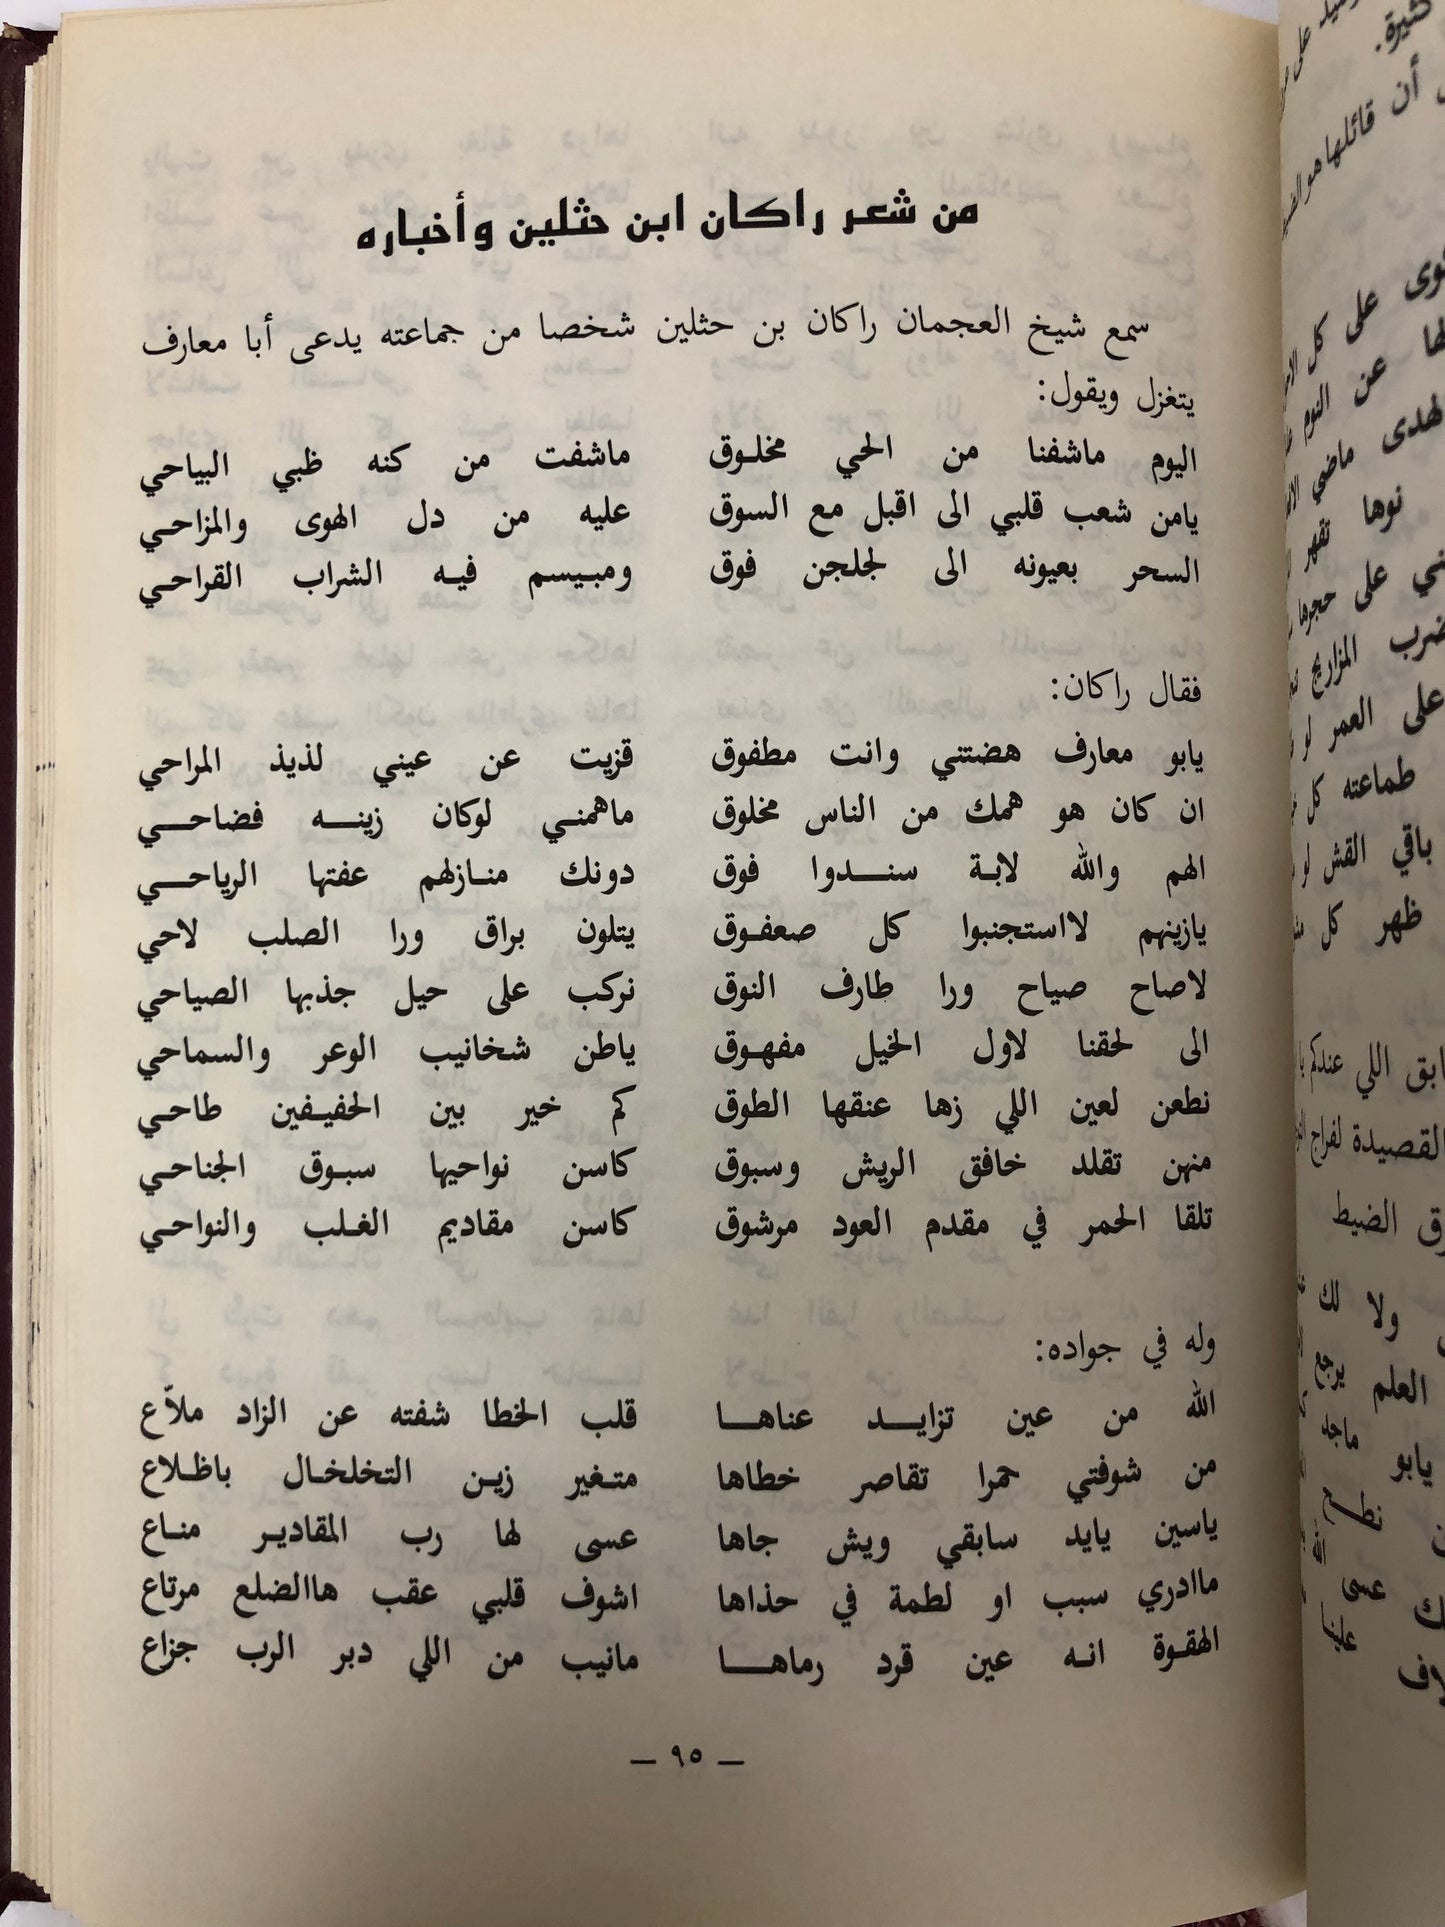 من شعر راكان ابن حثلين وأخباره
سمع شيخ العجمان راكان بن حثلين شخصا من جماعته يدعى أبا معارف
يتغزل ويقول:
اليوم ماشفنا من الحي مخلوق ماشفت من كنه ظبي البياحي
يامن شعب قلبي الى اقبل مع السوق عليه من دل الهوى والمزاحي
السحر بعيونه الى لجلجن فوق ومبيسم فيه الشراب القراحي
فقال راكان:
يابو معارف هضتني وانت مطفوق قزيت عن عيني لذيذ المراحي
ان كان هو همك من الناس مخلوق ماهمني لوكان زينه فضاحي
الهم والله لابة سندوا فوق دونك منازلهم عفتها الرياحي
يازينهم لااستجنبوا كل صعفوق يتلون براق ورا الصلب لاحي
لاصاح صياح ورا طارف النوق نركب على حيل جذبها الصياحي
الى لحقنا لاول الخيل مفهوق ياطن شخانيب الوعر والسماحي
نطعن لعين اللي زها عنقها الطوق كم خير بين الحفيفين طاحي
منهن تقلد خافق الريش وسبوق كاسن نواحيها سبوق الجناحي
تلقا الحمر في مقدم العود مرشوق كاسن مقاديم الغلب والنواحي
وله في جواده:
الله من عين تزايد عناها قلب الخطا شفته عن الزاد ملاّع
من شوفتي حمرا تقاصر خطاها متغير زين التخلخال باظلاع
ياسين يايد سابقي ويش جاها عسى لها رب المقادير مناع
ماادري سبب او لطمة في حذاها اشوف قلبي عقب هاالضلع مرتاع
الهقوة انه عين قرد رماها مانيب من اللي دبر الرب جزاع
— ٩٥ —
كثيرة.
أن قائلها هو
على كل
عن النوم
الهدى ماضي
نوها تقهر
على حجرها
ضرب المزاريج
على العمر لو
طماعته كل
باقي القش لو
ظهر كل
اللي عندكم
القصيدة لفراج
الضيط
ولا لك
العلم يرجع
يابو ماجد
نطرح
عسى الله
علينا